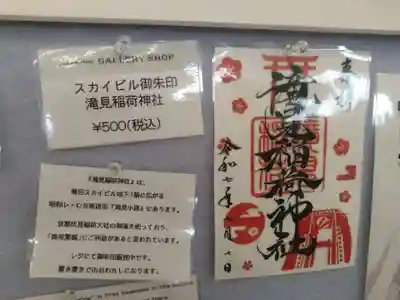 GALLERY SHOP
スカイビル御朱印
滝見稲荷神社
¥500(税込)
『滝見稲荷神社』は、
梅田スカイビル地下1階に広がる
昭和レトロな商店街『滝見小路』にあります。
京都伏見稲荷大社の御魂を祀っており、
「商売繁盛」にご利益があると言われています。
レジにて御朱印販売中です。
書き置きでのお渡しになります。
滝見稲荷神社
令和七年 月 日